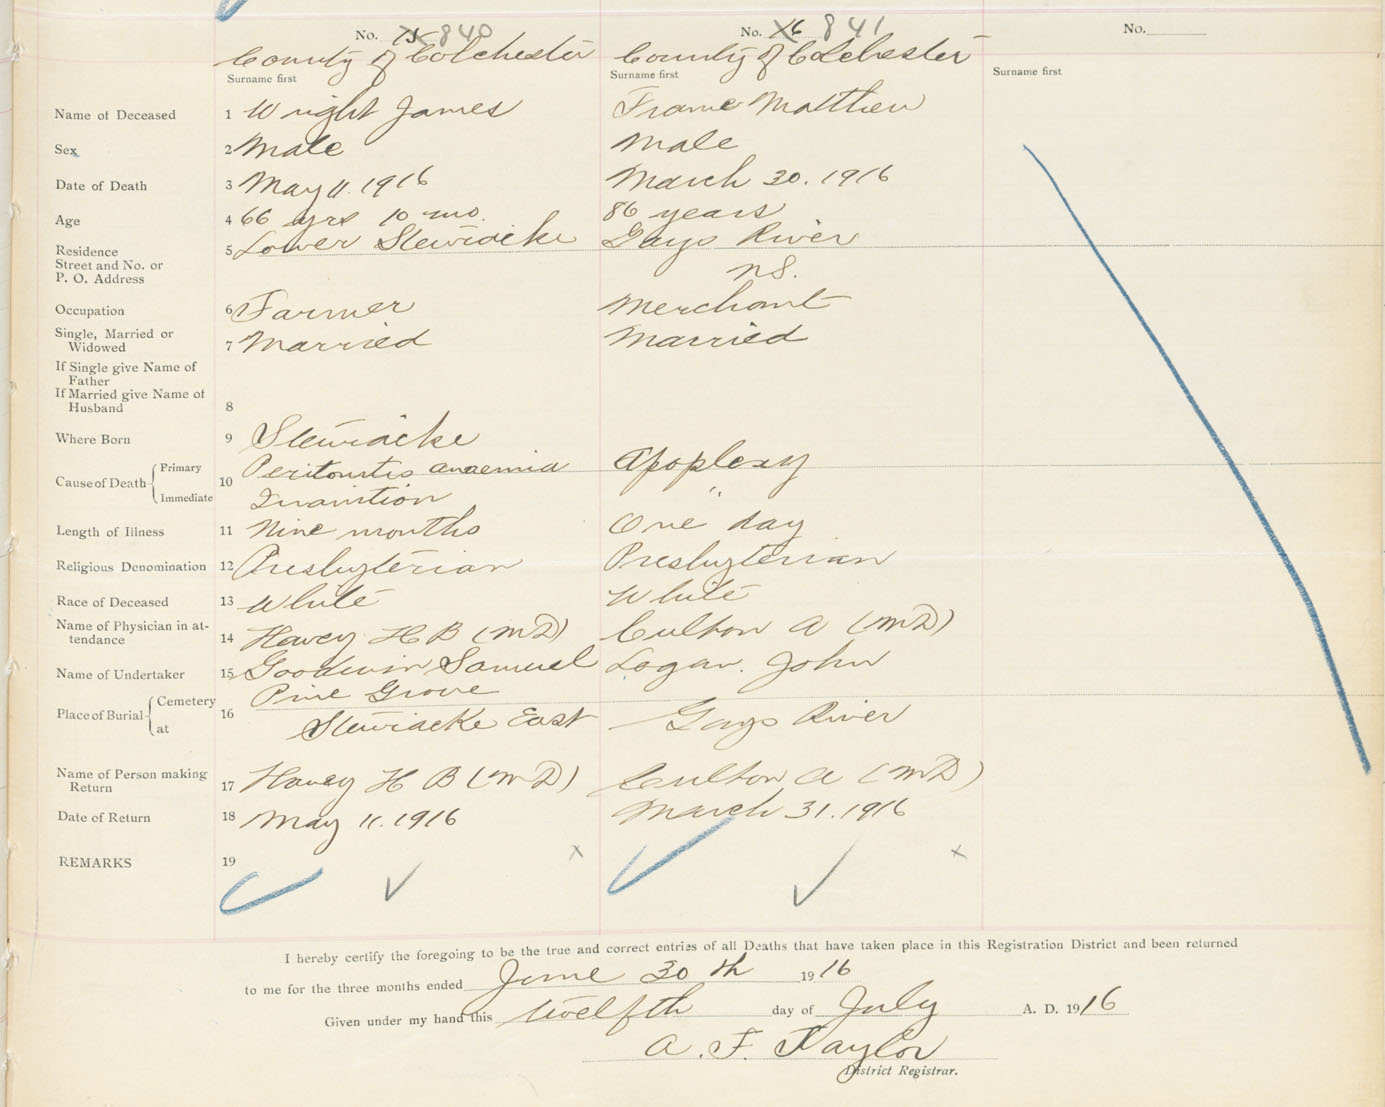 No. 840 No. 841 No.
County of Colchester County of Colchester
Surname first Surname first Surname first
Name of Deceased 1 Wright James Frame Matthew
Sex 2 Male Male
Date of Death 3 May 11. 1916 March 30. 1916
Age 4 66 yrs 10 mo. 86 years
Residence 5 Lower Stewiacke Gays River
Street and No. or
P. O. Address N.S.
Occupation 6 Farmer Merchant
Single, Married or
Widowed 7 Married Married
If Single give Name of
Father
If Married give Name of
Husband 8
Where Born 9 Stewiacke
Cause of Death 10 Primary Peritonitis anaemia Apoplexy
Immediate Inanition "
Length of Illness 11 Nine months One day
Religious Denomination 12 Presbyterian Presbyterian
Race of Deceased 13 White White
Name of Physician in at-
tendance 14 Havey H B (MD) Culton A (MD)
Name of Undertaker 15 Goodwin Samuel Logan. John
Place of Burial 16 Cemetery Pine Grove
at Stewiacke East Gays River
Name of Person making
Return 17 Havey H B (MD) Culton A (MD)
Date of Return 18 May 11. 1916 March 31. 1916
REMARKS 19
I hereby certify the foregoing to be the true and correct entries of all Deaths that have taken place in this Registration District and been returned
to me for the three months ended June 30th 1916
Given under my hand this twelfth day of July A. D. 1916
A. F. Taylor
District Registrar.